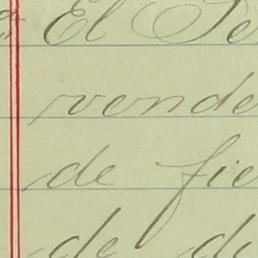 El Se
vende
de fie
de di